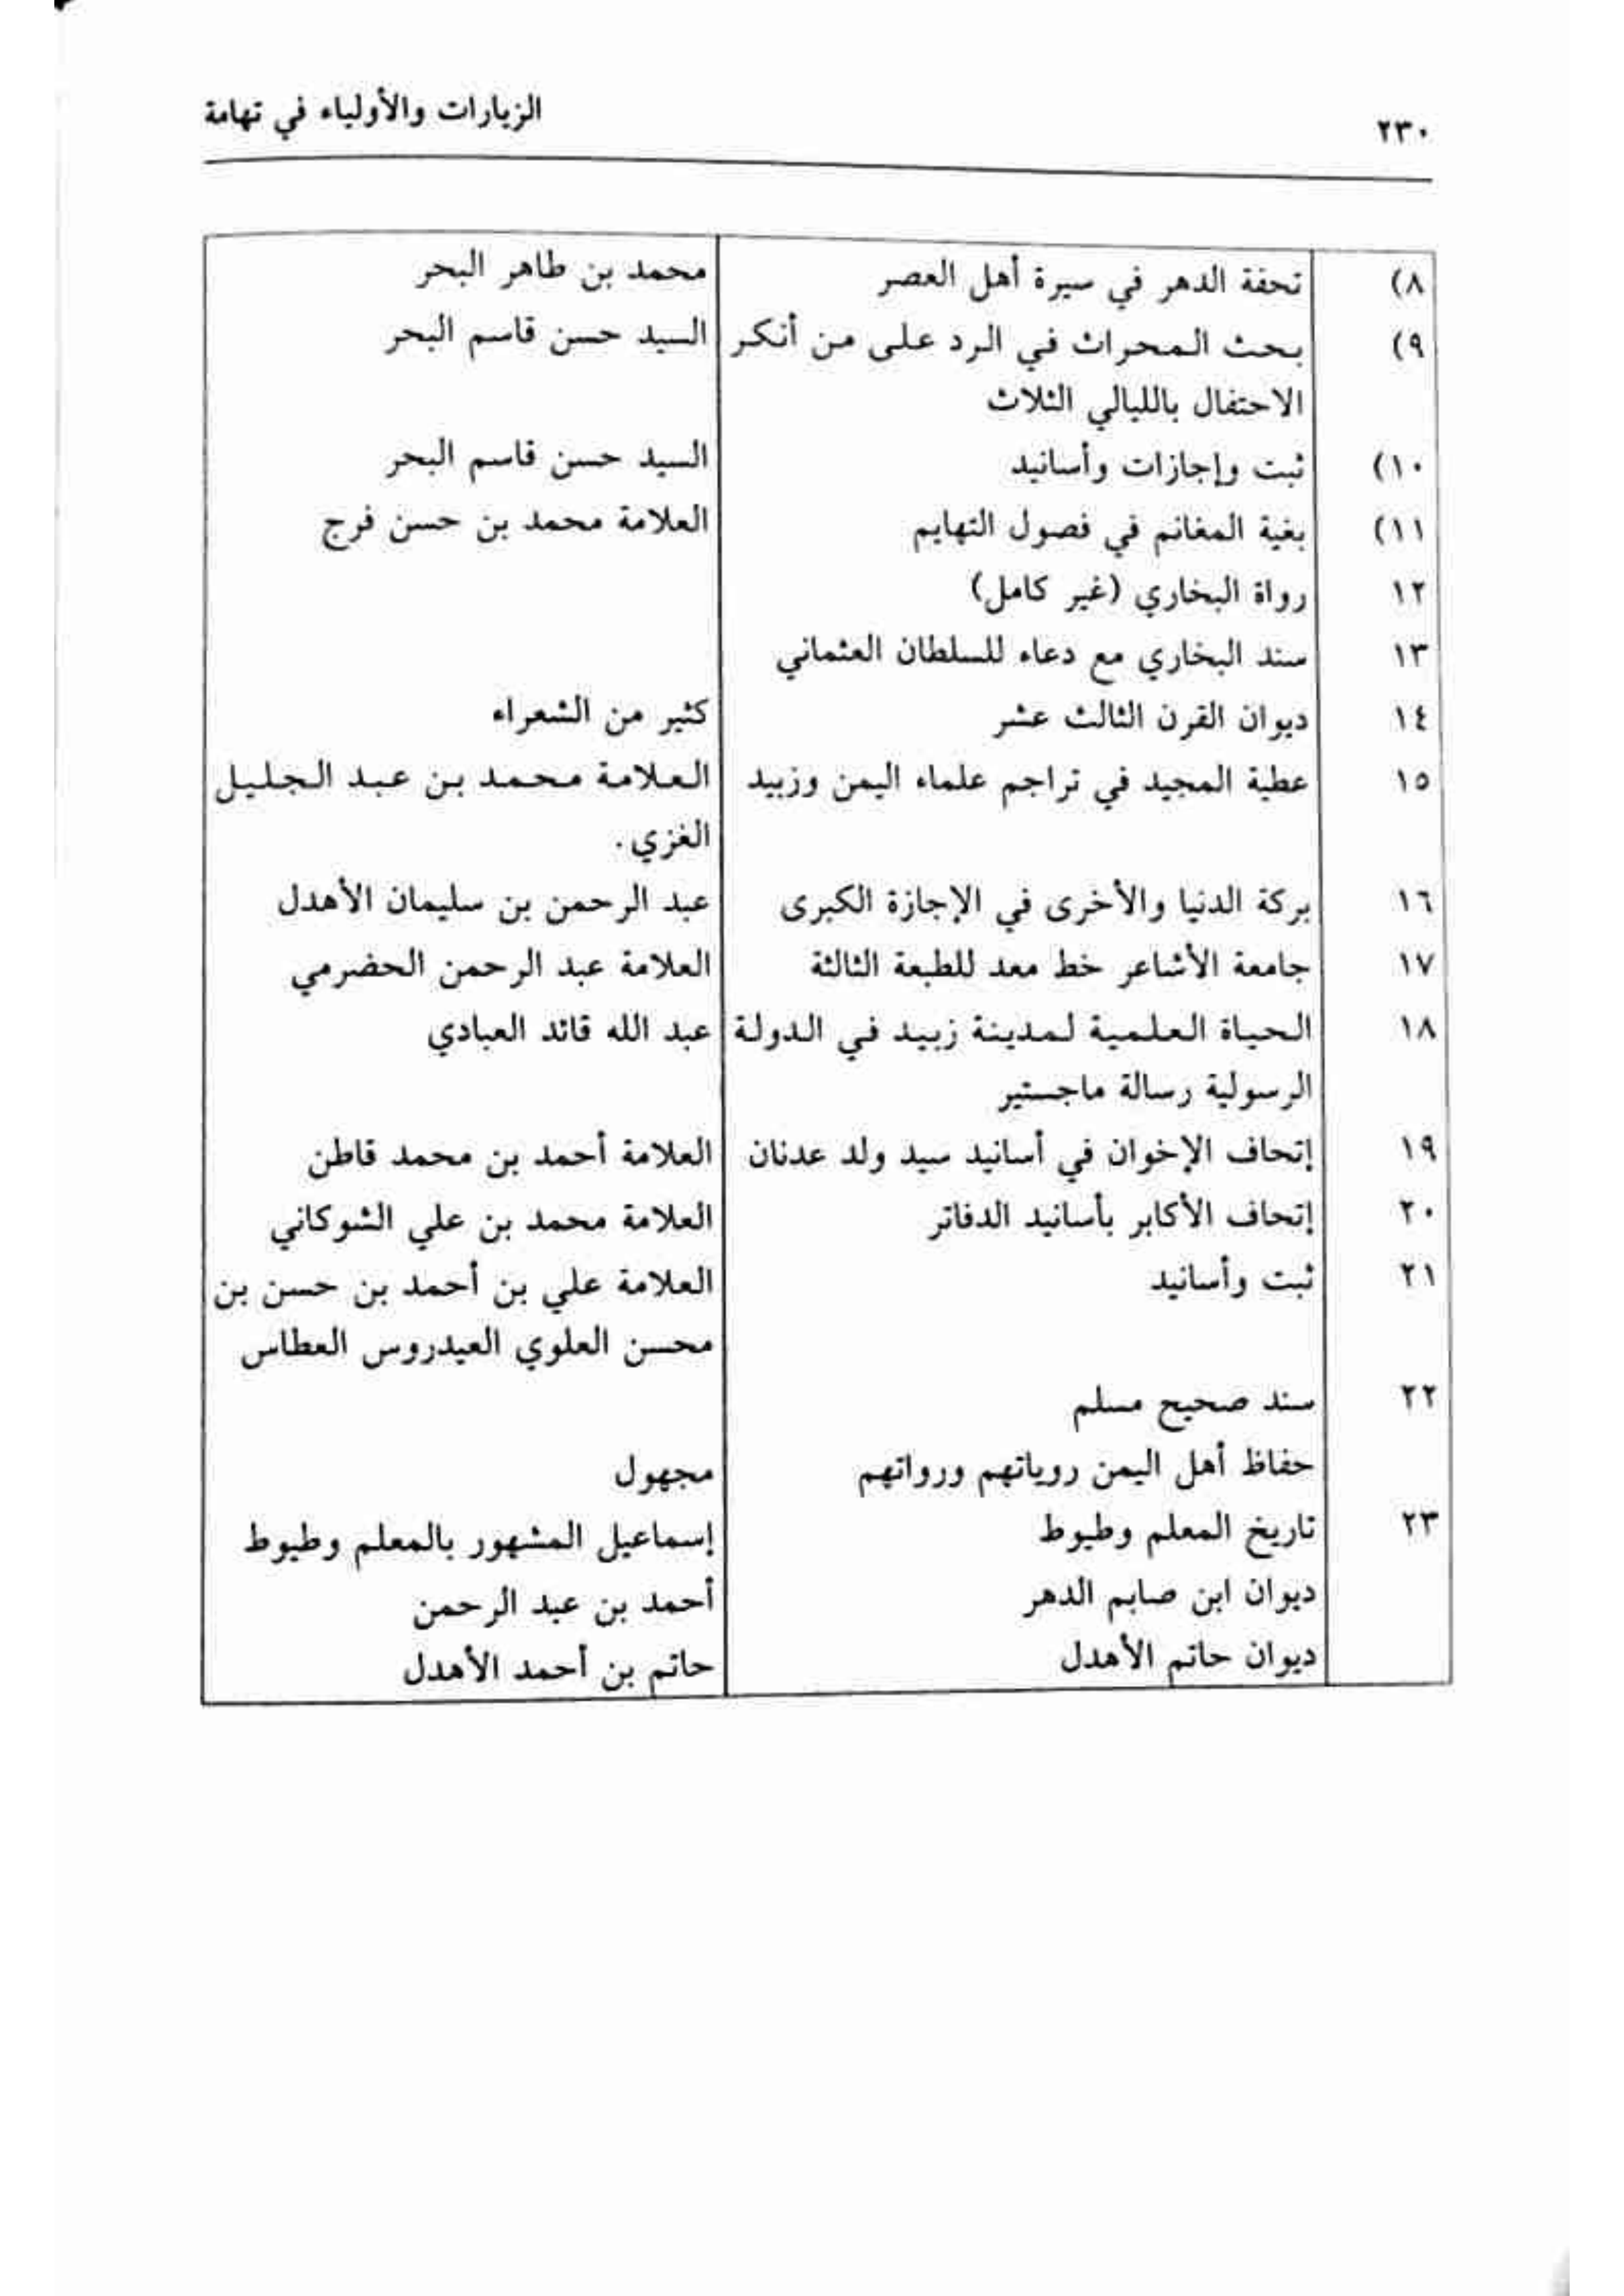 ٢٣٠
الزيارات والأولياء في تهامة
٨) تحفة الدهر في سيرة أهل العصر محمد بن طاهر البحر
٩) بحث المحراث في الرد على من أنكر السيد حسن قاسم البحر
الاحتفال بالليالي الثلاث
١٠) ثبت وإجازات وأسانيد السيد حسن قاسم البحر
١١) بغية المغانم في فصول التهايم العلامة محمد بن حسن فرج
١٢ رواة البخاري (غير كامل)
١٣ سند البخاري مع دعاء للسلطان العثماني
١٤ ديوان القرن الثالث عشر كثير من الشعراء
١٥ عطية المجيد في تراجم علماء اليمن وزبيد العلامة محمد بن عبد الجليل
الغزي.
١٦ بركة الدنيا والأخرى في الإجازة الكبرى عبد الرحمن بن سليمان الأهدل
١٧ جامعة الأشاعر خط معد للطبعة الثالثة العلامة عبد الرحمن الحضرمي
١٨ الحياة العلمية لمدينة زبيد في الدولة عبد الله قائد العبادي
الرسولية رسالة ماجستير
١٩ إتحاف الإخوان في أسانيد سيد ولد عدنان العلامة أحمد بن محمد قاطن
٢٠ إتحاف الأكابر بأسانيد الدفاتر العلامة محمد بن علي الشوكاني
٢١ ثبت وأسانيد العلامة علي بن أحمد بن حسن بن
محسن العلوي العيدروس العطاس
٢٢ سند صحيح مسلم
حفاظ أهل اليمن روياتهم ورواتهم مجهول
٢٣ تاريخ المعلم وطيوط إسماعيل المشهور بالمعلم وطيوط
ديوان ابن صابم الدهر أحمد بن عبد الرحمن
ديوان حاتم الأهدل حاتم بن أحمد الأهدل